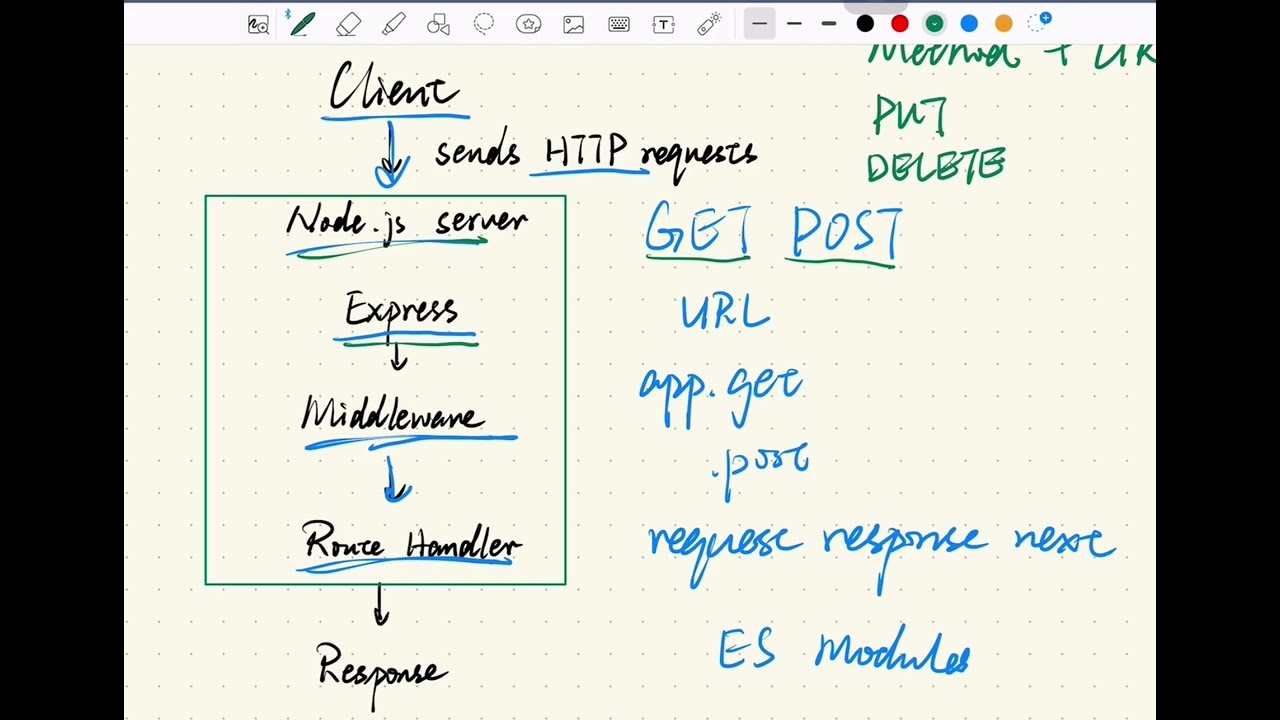 Client
sends HTTP requests
Node.js server
Express
Middleware
Route Handler
Response
Method + UR
PUT
DELETE
GET POST
URL
app.get
.post
request response next
ES Modules